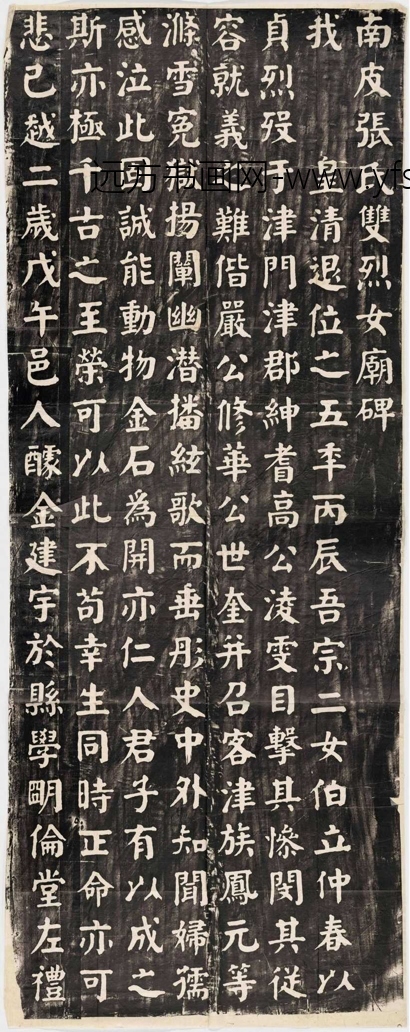 南皮張氏雙烈女廟碑
我 皇清退位之五秊丙辰吾宗二女伯立仲春以
貞烈歿于津門津郡紳耆高公淩雯目擊其慘閔其從
容就義之難偕嚴公修華公世奎并召客津族鳳元等
滌雪冤獄揚闡幽潛播絃歌而垂彤史中外知聞婦孺
感泣此誠能動物金石為開亦仁人君子有以成之
斯亦極千古之至榮可以此不苟幸生同時正命亦可
悲已越二歲戊午邑人醵金建宇於縣學明倫堂左禮
远方书画网-www.yfs